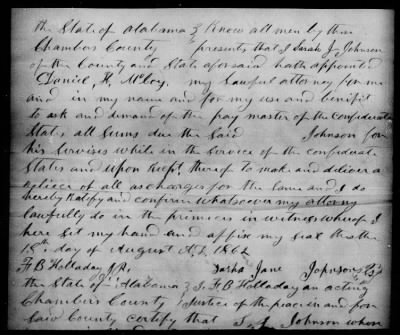 the State of Alabama } Know all men by these
Chambers County presents that I Sarah J. Johnson
of the County and State aforsaid hath appointed
Daniel H. McCoy my lawful attorney for me
and in my name and for my use and benifit
to ask and demand of the pay master of the Confederate
States all sums due the said Johnson for
his servises while in the service of the confederate
States and upon thereof to make and deliver a
of all as charges for the same and I do
hereby Ratify and confirm whatsoever my attorny
lawfully do in the primices in witness whereof I
here set my hand and affix my seal this the
15th day of August A.D. 1862
F B Holladay J.P. Sarha Jane Johnson
the State of Alabama } I F. B Holladay an acting
Chambers County Justice of the peace in and for
Said County certify that S. J. Johnson whose